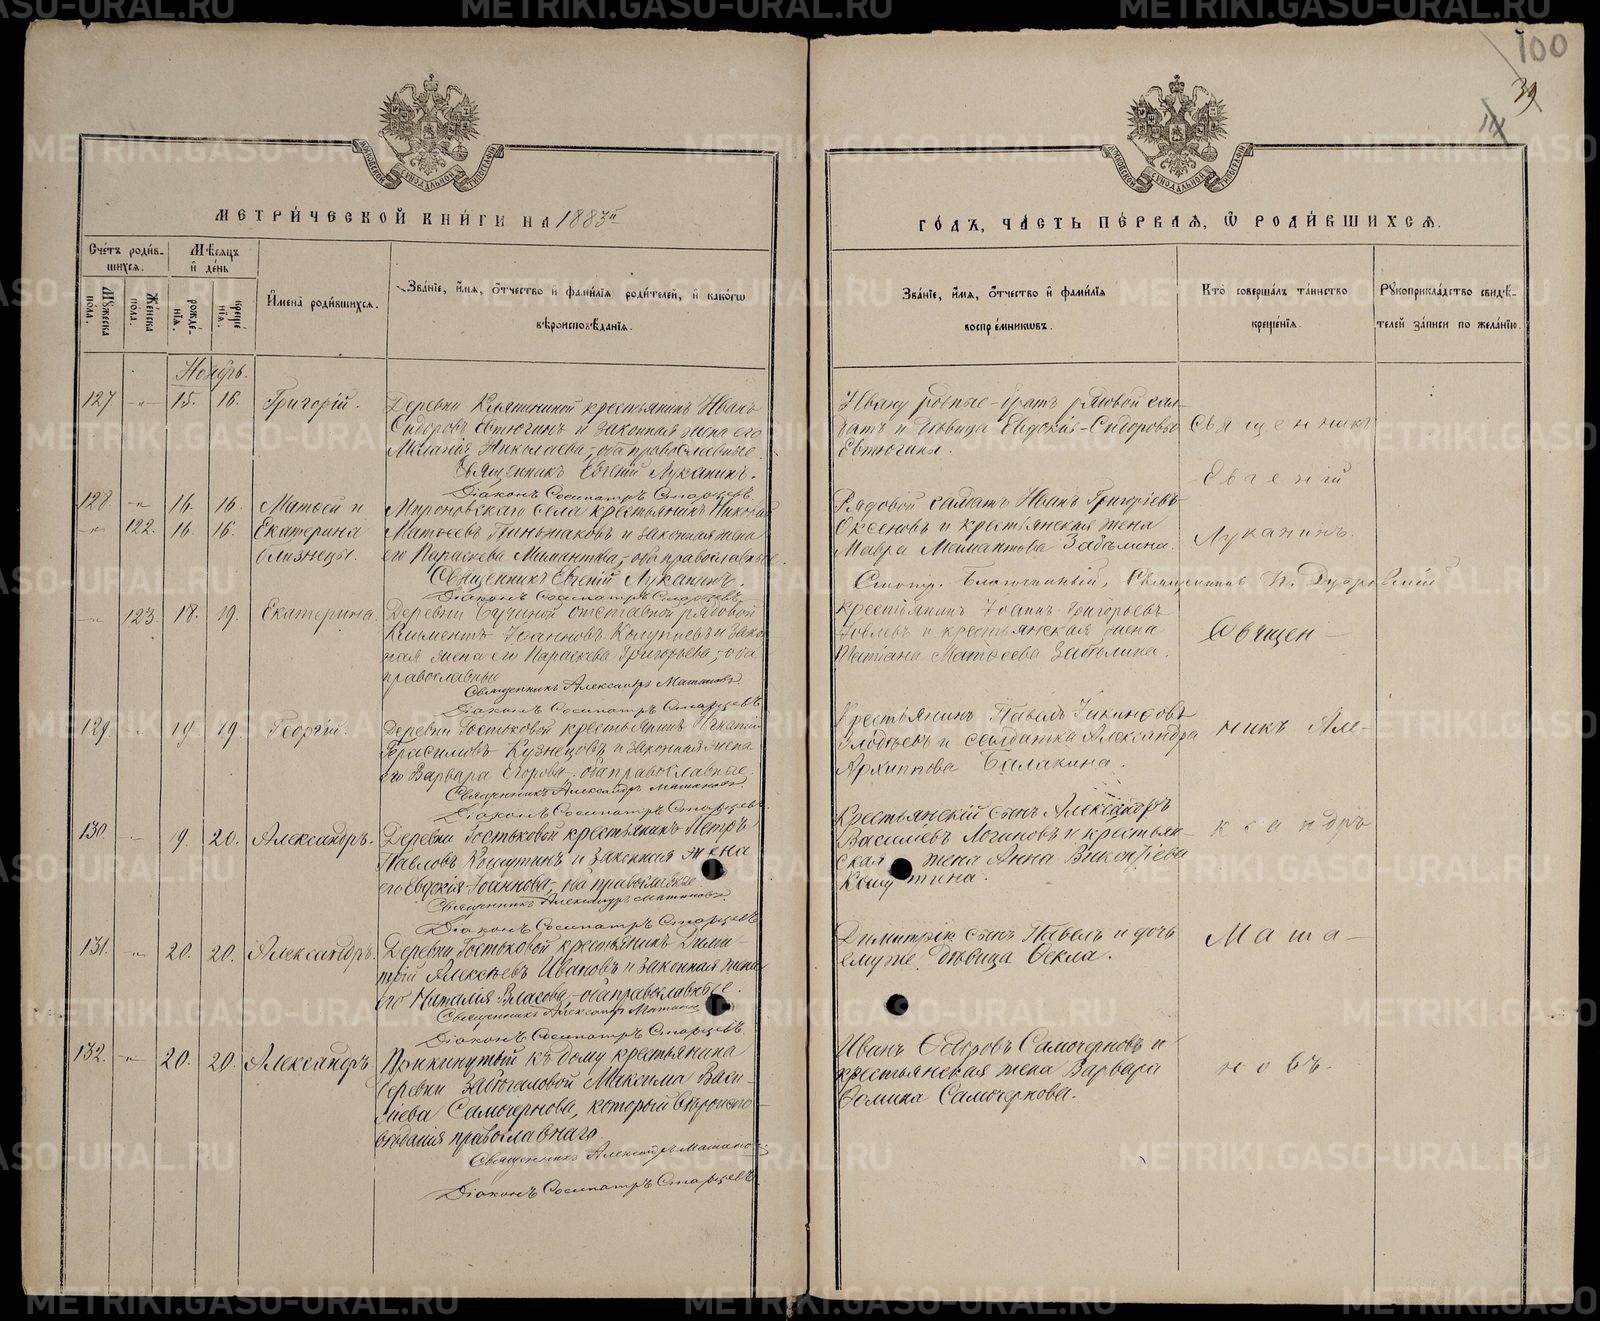 100
39
МЕТРИ́ЧЕСКОЙ КНИ́ГИ НА 1883й
ГО́ДЪ, ЧА́СТЬ ПЕ́РВАЯ, Ѡ҆ РОДИ́ВШИХСЯ.
Сче́тъ роди́в-
шихся.
Му́жеска
по́ла.
Же́нска
пола.
Мѣ́сяцъ
и҆ де́нь
рожде́-
нїя.
креще́
нїя.
И҆мена̀ роди́вшихся.
Зва́нїе, и҆́мя, ѻ҆́тчество и҆ фами́лїя роди́телей, и҆ како́гѡ
вѣроисповѣ́данїя.
Зва́нїе, и҆́мя, ѻ҆́тчество и҆ фами́лїя
воспрїе́мниковъ.
Кто̀ соверша́лъ та́инство
креще́нїя.
Рꙋкоприкла́дство свидѣ́-
телей за́писи по жела́нїю.
Ноябрь.
127 " 15. 16. Григорій.
Деревни крестьянинъ Иванъ
Сидоровъ Евтюгинъ и законная жена его
Меланія Николаева, оба православные.
Священникъ Евгеній Луканинъ.
Діаконъ Сосипатръ Старцевъ.
Ивану родные братъ рядовой сол-
датъ и девица Евдокія Сидоровы
Евтюгины.
Священникъ
Евгеній
128. " 16. 16. Матѳей и
" 122. 16 16. Екатерина
близнецы.
Мироновскаго села крестьянинъ Николай
Матѳеевъ и законная жена
его Параскева Мамантова, оба православные.
Священникъ Евгеній Луканинъ.
Діаконъ Сосипатръ Старцевъ.
Рядовой солдатъ Иванъ Григоріевъ
Оксеновъ и крестьянская жена
Мавра Мамантова Забѣлина.
Луканинъ.
Смотр. Благочинный, Священникъ П. Дубровскій
" 123. 18. 19. Екатерина.
Деревни Бучиной отставной рядовой
Климентъ Іоанновъ и зако-
ная жена его Параскева Григорьева, оба
православные
Священникъ Александръ Машановъ.
Діаконъ Сосипатръ Старцевъ
Крестьянинъ Іоаннъ Григорьевъ
и крестьянская жена
Татіана Матѳеева Забѣлина.
Священ-
129. " 19. 19. Георгій.
Деревни Гостьковой крестьянинъ
Герасимовъ Кузнецовъ и законная жена
его Варвара Егорова, оба православные.
Священникъ Александръ Машановъ.
Діаконъ Сосипатръ Старцевъ.
Крестьянинъ Павелъ
и солдатка Александра
Архиппова Балакина.
никъ Але-
130. " 9. 20. Александръ.
Деревни Гостьковой крестьянинъ Петръ
Павловъ Кошутинъ и законная жена
его Евдокія Іоаннова, оба православные
Священникъ Александръ Машановъ
Діаконъ Сосипатръ Старцевъ
Крестьянскій сынъ Александръ
Василіевъ Логиновъ и крестьян-
ская жена Анна Викентіева
Кошутина.
ксандръ
131. " 20. 20. Александръ.
Деревни Гостьковой крестьянинъ Дими-
трій Алексѣевъ Ивановъ и законная жена
его Наталія Власова, оба православные.
Священникъ Александръ Машановъ
Діаконъ Сосипатръ Старцевъ.
Димитрія сынъ Павелъ и дочь
ему же дѣвица Ѳекла.
Маша-
132. " 20. 20. Александръ
Прикинутый къ дому крестьянина
деревни Забогаловой Максима Васи-
лiева Самочернова, который вѣроиспо-
вѣданія православнаго.
Священникъ Александръ Машановъ
Діаконъ Сосипатръ Старцевъ
Иванъ Ѳедоровъ Самочерновъ и
крестьянская жена Варвара
Ѳомина Самочернова.
новъ.
METRIKI.GASO-URAL.RU